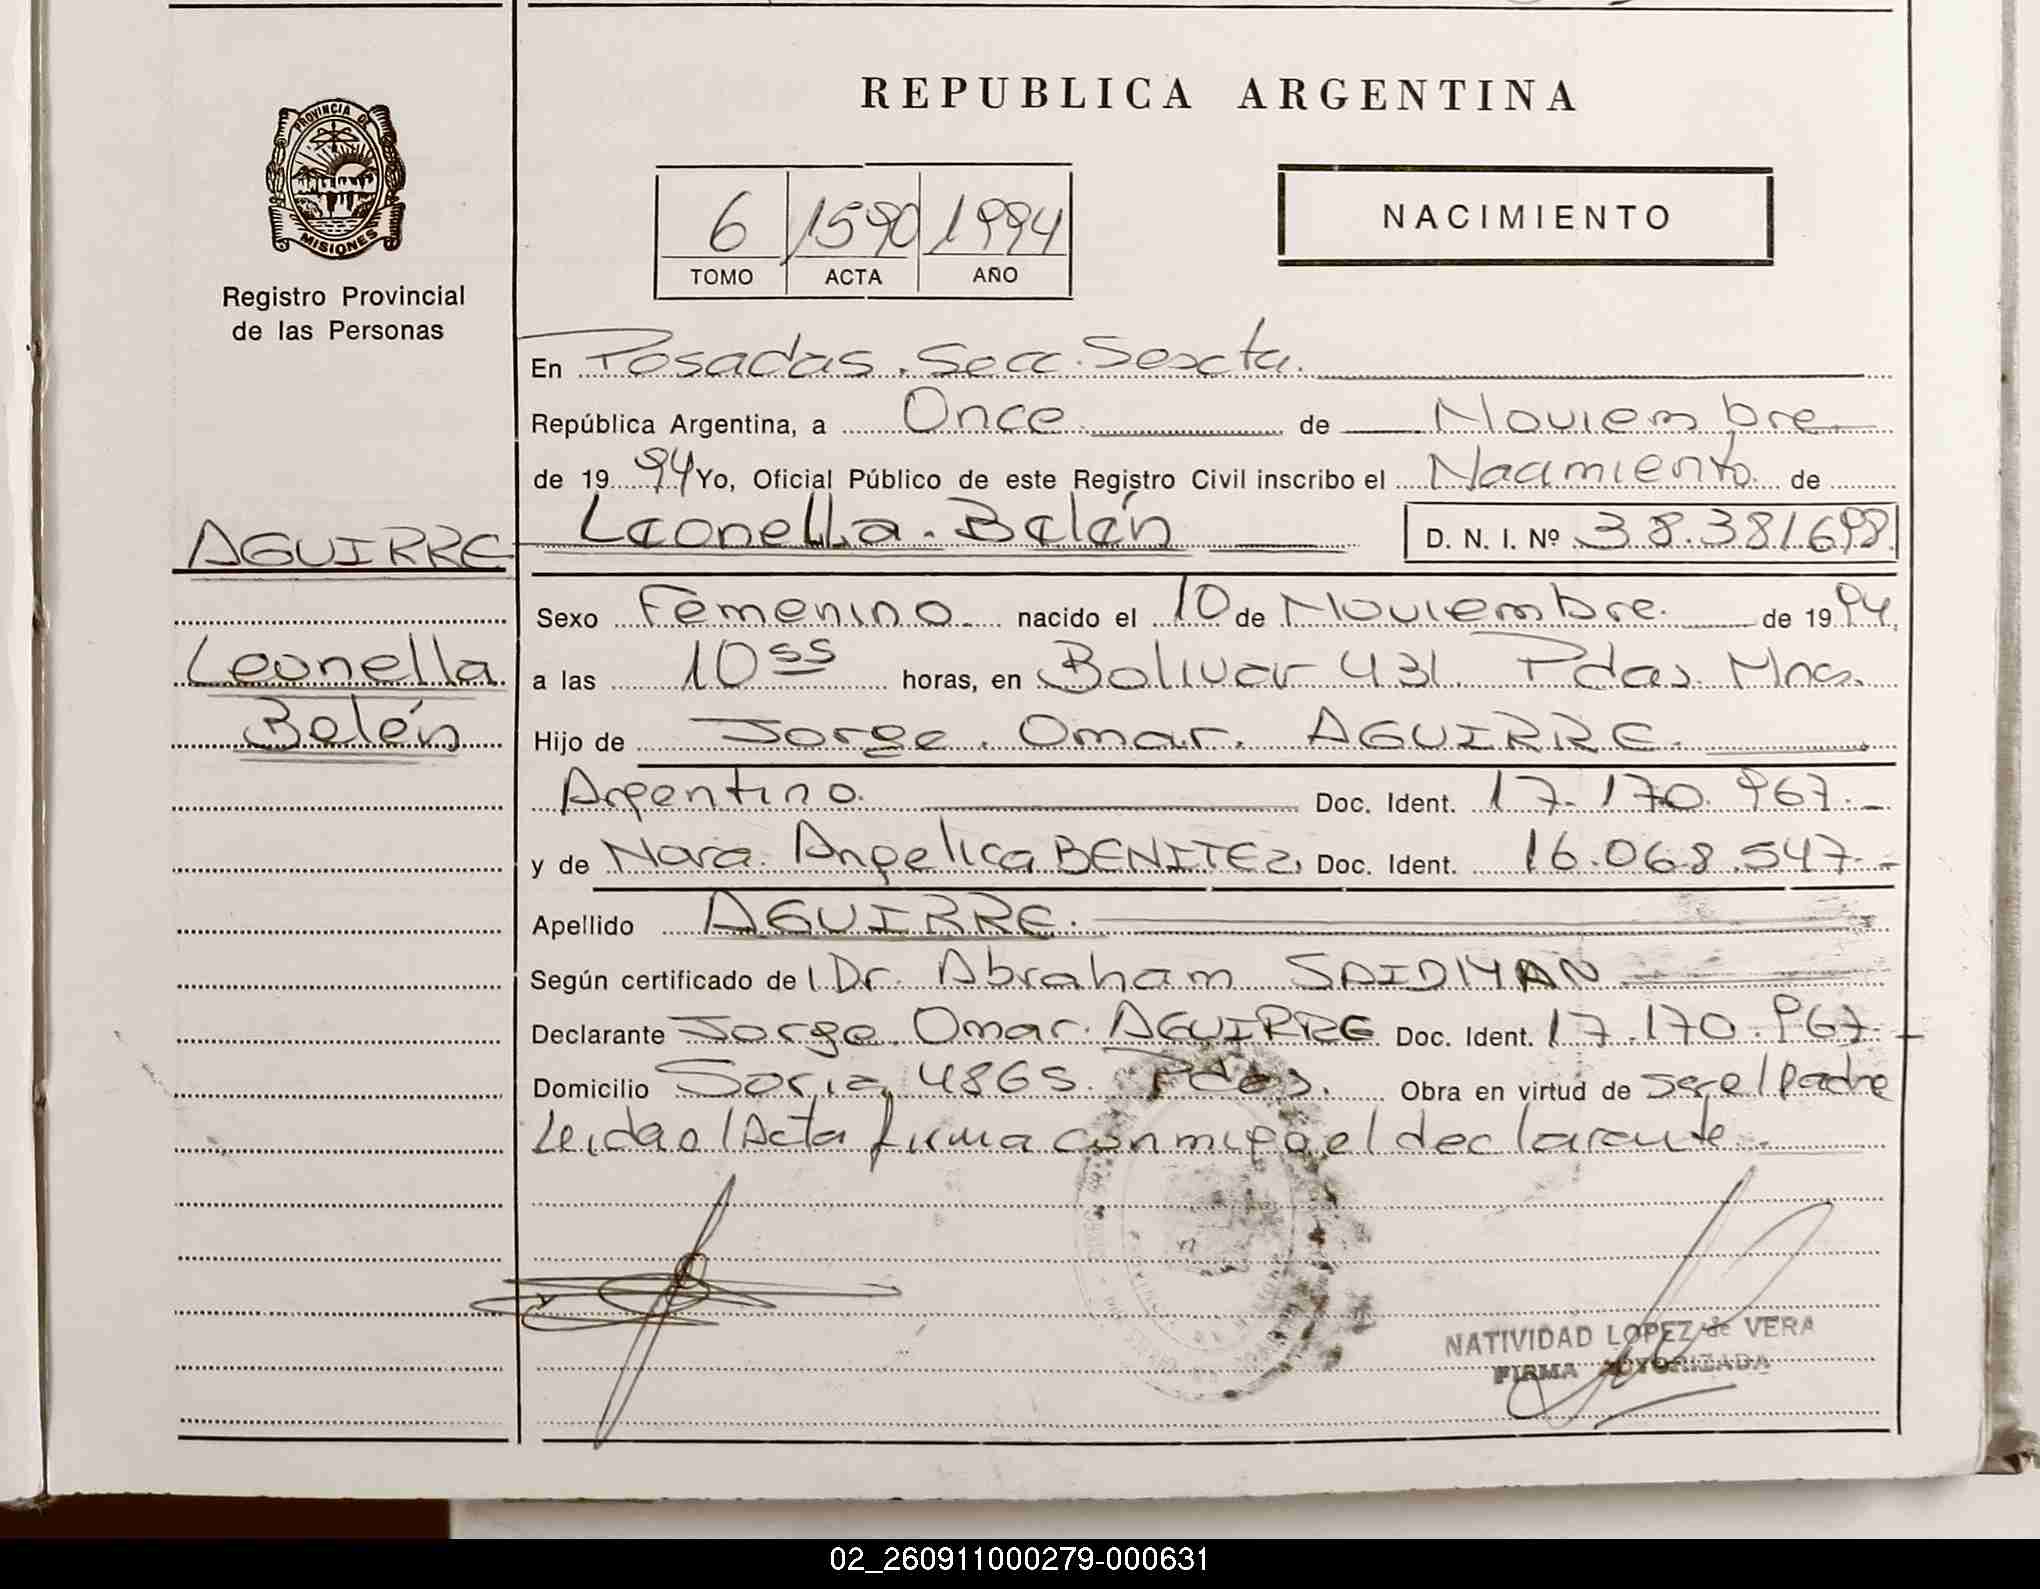 REPUBLICA ARGENTINA
PROVINCIA DE
MISIONES
Registro Provincial
de las Personas
6 1590 1994
TOMO ACTA AÑO
NACIMIENTO
En Posadas. Secc. Sexta.
República Argentina, a Once de Noviembre
de 19 94 Yo, Oficial Público de este Registro Civil inscribo el Nacimiento de
AGUIRRE Leonella Belén D. N. I. Nº 38.381.698
Sexo Femenino nacido el 10 de Noviembre de 19 94
Leonella a las 10 55 horas, en Bolivar 431. Pdas. Mnes.
Belén Hijo de Jorge Omar AGUIRRE
Argentino. Doc. Ident. 17.170.967
y de Nora Angelica BENITEZ Doc. Ident. 16.068.547
Apellido AGUIRRE
Según certificado de Dr. Abraham SAIDMAN
Declarante Jorge Omar AGUIRRE Doc. Ident. 17.170.967
Domicilio Soria 4865. Pdas. Obra en virtud de ser el padre
Leida el Acta firma conmigo el declarante
NATIVIDAD LOPEZ de VERA
FIRMA AUTORIZADA
02_260911000279-000631